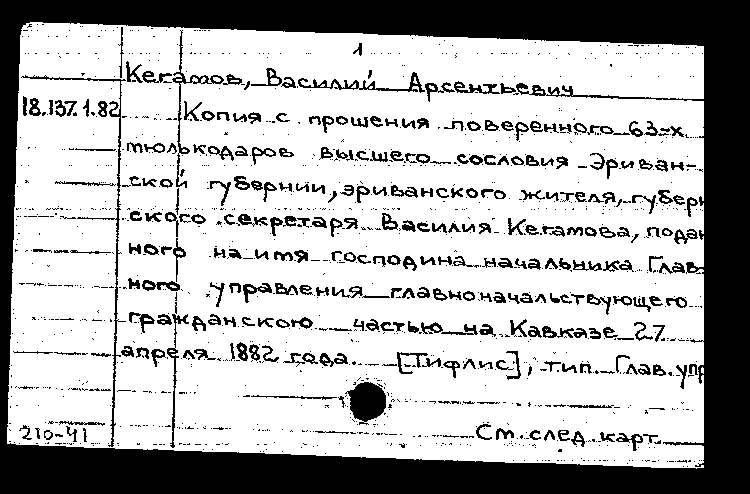 1
Кегамов, Василий Арсентьевич
18.137.1.82 Копия с прошения поверенного 63-х
тюлькодаров высшего сословия Эриван-
ской губернии, эриванского жителя, губерн
ского секретаря Василия Кегамова, подан
ного на имя господина начальника Глав-
ного управления главноначальствующего
гражданскою частью на Кавказе 27
апреля 1882 года. [Тифлис], тип. Глав. упр
210-41 См. след. карт.